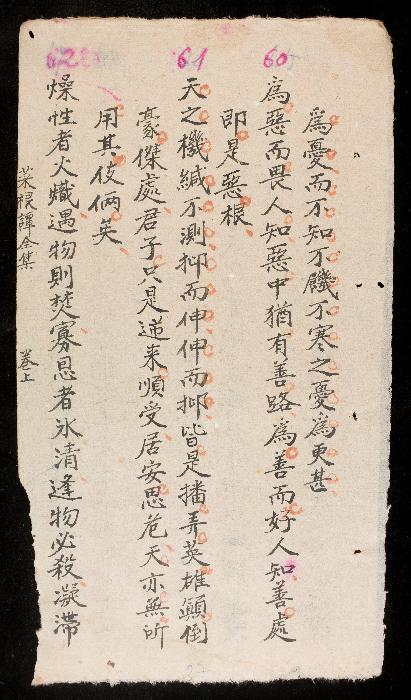 為憂而不知不饑不寒之憂為更甚
60
為惡而畏人知惡中猶有善路為善而好人知善處
即是惡根
61
天之機緘不測抑而伸伸而抑皆是播弄英雄顛倒
豪傑處君子只是逆来順受居安思危天亦無所
用其伎俩矣
62
燥性者火熾遇物則焚寡恩者氷清逢物必殺凝滯
菜根譚全集 卷上